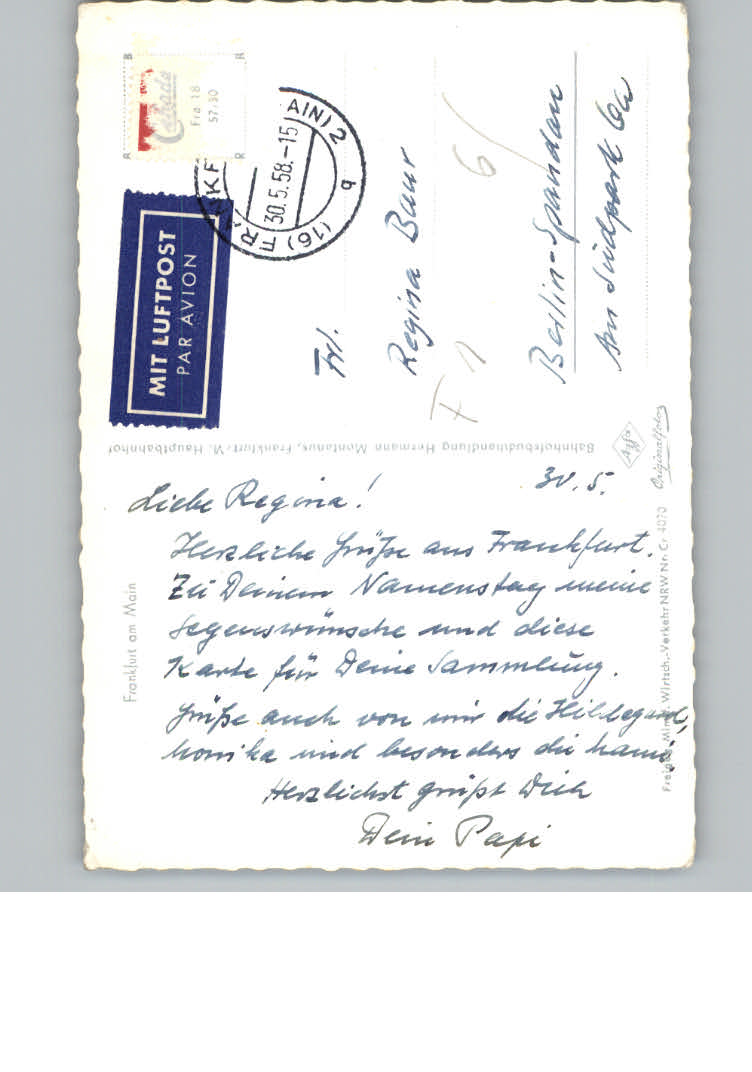 Liebe Regina!
30.5.
Herzliche Grüße aus Frankfurt.
Zu Deinem Namenstag meine
Segenswünsche und diese
Karte für Deine Sammlung.
Grüße auch von mir die Hildegard,
Monika und besonders die Mami,
Herzlichst grüßt Dich
Dein Papi
Frl.
Regina Baur
Berlin-Spandau
Am Südpark 6a
6/
MIT LUFTPOST
PAR AVION
30.5.58.-15
AIN) 2
q
(16) FR
KF
Canada
Fra 18
57.30
R
B
R
R
Frankfurt am Main
Bahnhofsbuchhandlung Hermann Montanus, Frankfurt-M. Hauptbahnhof
Agfa
Originalfoto
Wirtsch.-Verkehr NRW Nr. Cr 4070